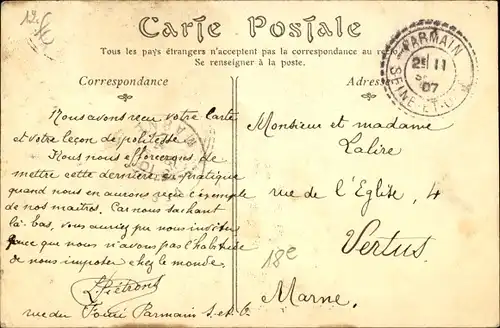 Carte Postale
Tous les pays étrangers n'acceptent pas la correspondance au
Se renseigner à la poste.
Correspondance
Adresse
PARMAIN
11
07
SEINE-ET-O
Nous avons reçu votre carte
et votre leçon de politesse.
Nous nous efforcerons de
mettre cette dernière en pratique
quand nous en aurons reçu l'exemple
de nos maîtres. Car nous sachant
là-bas, vous auriez pu nous inviter
parce que nous n'avons pas l'habitude
de nous imposer chez le monde.
rue du Parmain S.-et-O.
Monsieur et madame
Lalire
rue de l'Eglise, 4
Vertus
18e
Marne.